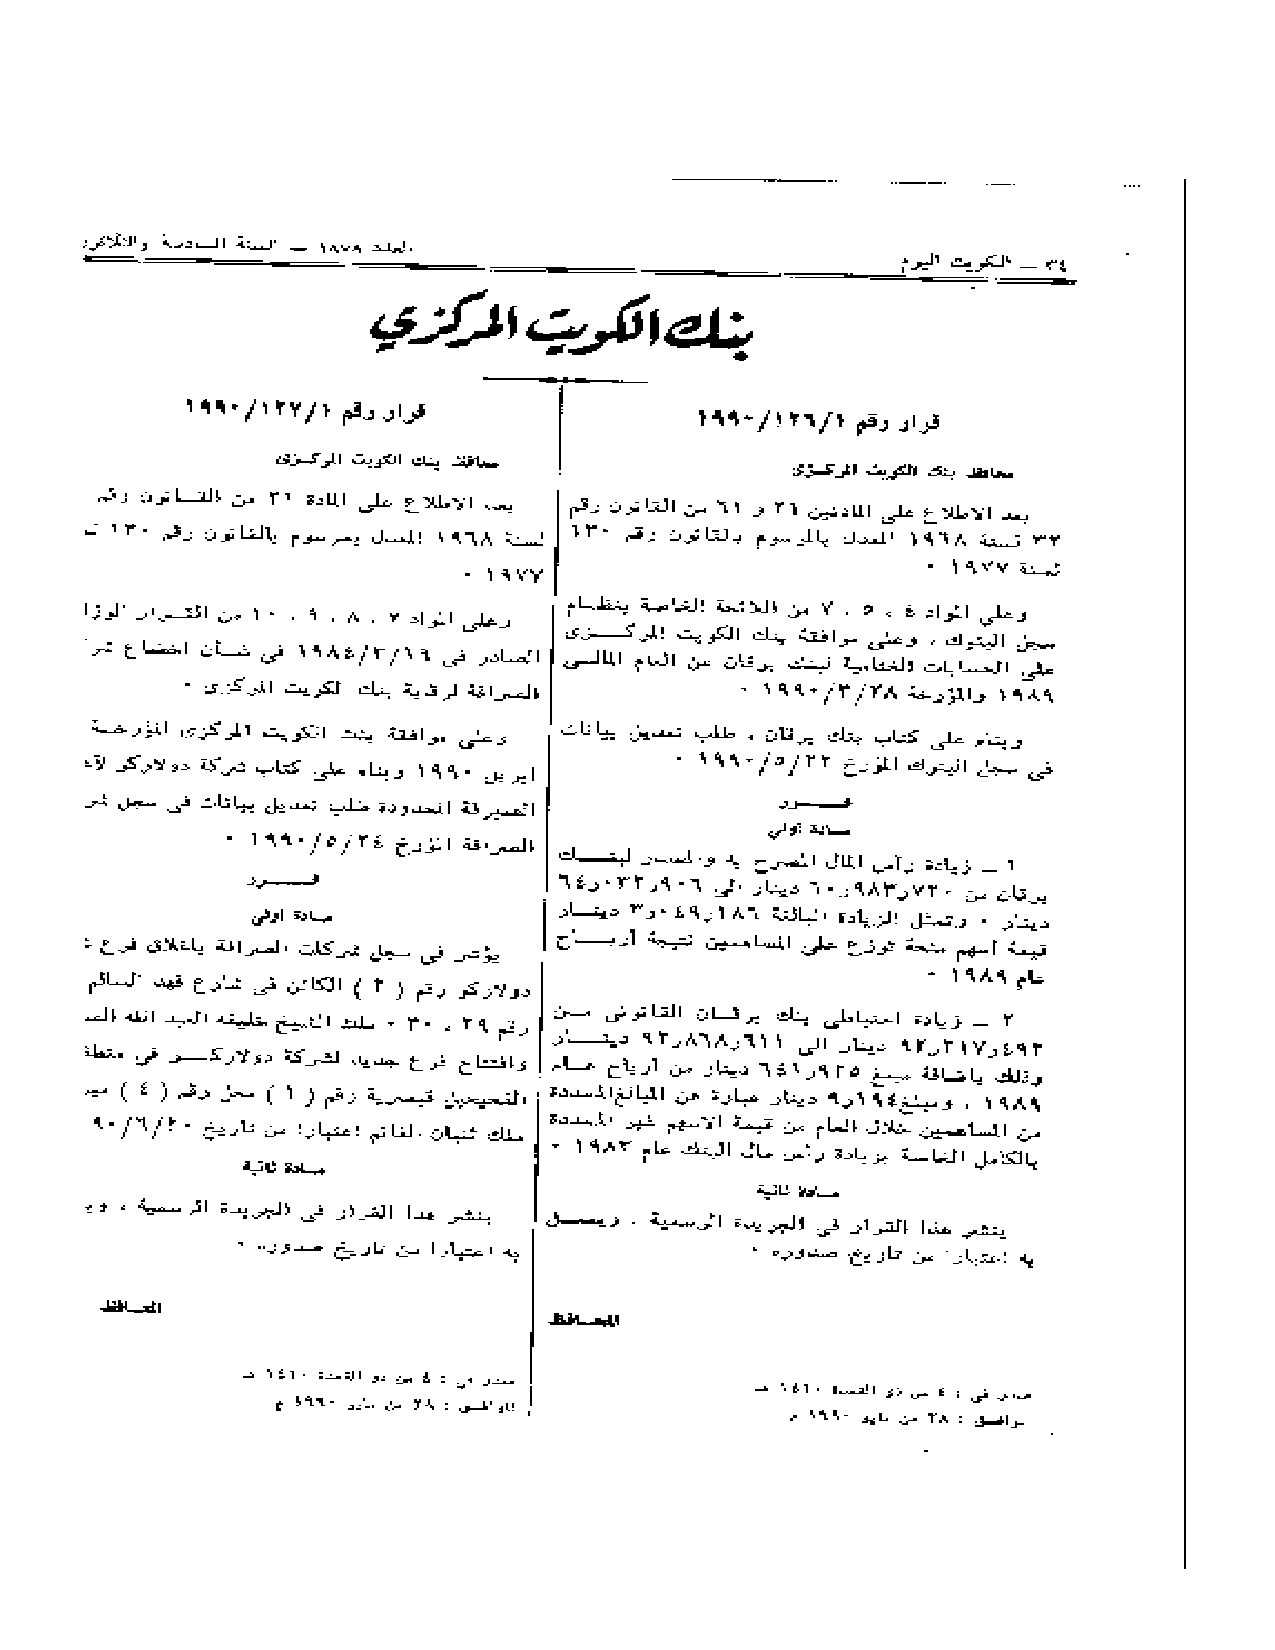 ٣٤ — الكويت اليوم
العدد ١٨٧٩ — السنة السادسة والثلاثون
بنك الكويت المركزي
قرار رقم ١٩٩٠/١٢٦/١
محافظ بنك الكويت المركزى
بعد الاطلاع على المادتين ٢٦ و ٦١ من القانون رقم
٣٢ لسنة ١٩٦٨ المعدل بالمرسوم بالقانون رقم ١٣٠
لسنة ١٩٧٧ ٠
وعلى المواد ٤ ، ٥ ، ٧ من اللائحة الخاصة بنظام
سجل البنوك ، وعلى موافقة بنك الكويت المركزى
على الحسابات الختامية لبنك برقان عن العام المالى
١٩٨٩ والمؤرخة ١٩٩٠/٣/٢٨ ٠
وبناء على كتاب بنك برقان ، طلب تعديل بيانات
فى سجل البنوك المؤرخ ١٩٩٠/٥/٢٢ ٠
قـــرر
مـادة أولى
١ — زيادة رأس المال المصرح به والمصدر لبنك
برقان من ٦٠٫٩٨٣٫٧٢٠ دينار الى ٦٤٫٠٣٢٫٩٠٦
دينار ٠ وتمثل الزيادة البالغة ٣٫٠٤٩٫١٨٦ دينار
قيمة أسهم منحة توزع على المساهمين نتيجة أرباح
عام ١٩٨٩ ٠
٢ — زيادة احتياطى بنك برقان القانونى من
٩٢٫٢١٧٫٤٩٢ دينار الى ٩٢٫٨٦٨٫٦١١ دينار
وذلك باضافة مبلغ ٦٤١٫٩٢٥ دينار من أرباح عام
١٩٨٩ ، ومبلغ ٩٫١٩٤ دينار عبارة عن المبالغ المسددة
من المساهمين خلال العام من قيمة الاسهم غير المسددة
بالكامل الخاصة بزيادة رأس مال البنك عام ١٩٨٣ ٠
مـادة ثانية
ينشر هذا القرار فى الجريدة الرسمية ، ويعمل
به اعتبارا من تاريخ صدوره ٠
المحــافظ
صدر فى : ٤ من ذو القعدة ١٤١٠ هـ
الموافق : ٢٨ من مايو ١٩٩٠ م
قرار رقم ١٩٩٠/١٢٧/١
محافظ بنك الكويت المركزى
بعد الاطلاع على المادة ٢٦ من القانون رقم
لسنة ١٩٦٨ المعدل بمرسوم بالقانون رقم ١٣٠
١٩٧٧ ٠
وعلى المواد ٧ ، ٨ ، ٩ ، ١٠ من القرار الوزا
الصادر فى ١٩٨٤/٢/١٦ فى شأن اخضاع شر
الصرافة لرقابة بنك الكويت المركزى ٠
وعلى موافقة بنك الكويت المركزى المؤرخة
ابريل ١٩٩٠ وبناء على كتاب شركة دولاركو لأ
الصيرفة المحدودة طلب تعديل بيانات فى سجل شر
الصرافة المؤرخ ١٩٩٠/٥/٢٤ ٠
قـــرر
مـادة أولى
يؤشر فى سجل شركات الصرافة باغلاق فرع
دولاركو رقم ( ٢ ) الكائن فى شارع فهد السالم
رقم ٢٩ ، ٣٠ ٠ ملك الشيخ خليفه العبد الله الصـ
وافتتاح فرع جديد لشركة دولاركو فى منطقـ
الفحيحيل قيصرية رقم ( ١ ) محل رقم ( ٤ )
ملك ثنيان الغانم اعتبارا من تاريخ ٩٠/٦/٢٠
مـادة ثانية
ينشر هذا القرار فى الجريدة الرسمية ، ويـ
به اعتبارا من تاريخ صدوره ٠
المحــافظ
صدر فى : ٤ من ذو القعدة ١٤١٠ هـ
الموافق : ٢٨ من مايو ١٩٩٠ م